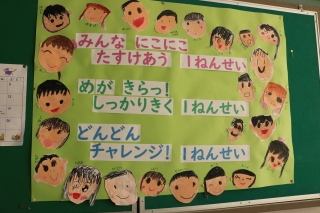 みんな にこにこ
たすけあう 1ねんせい
めが きらっ!
しっかりきく 1ねんせい
どんどん
チャレンジ! 1ねんせい